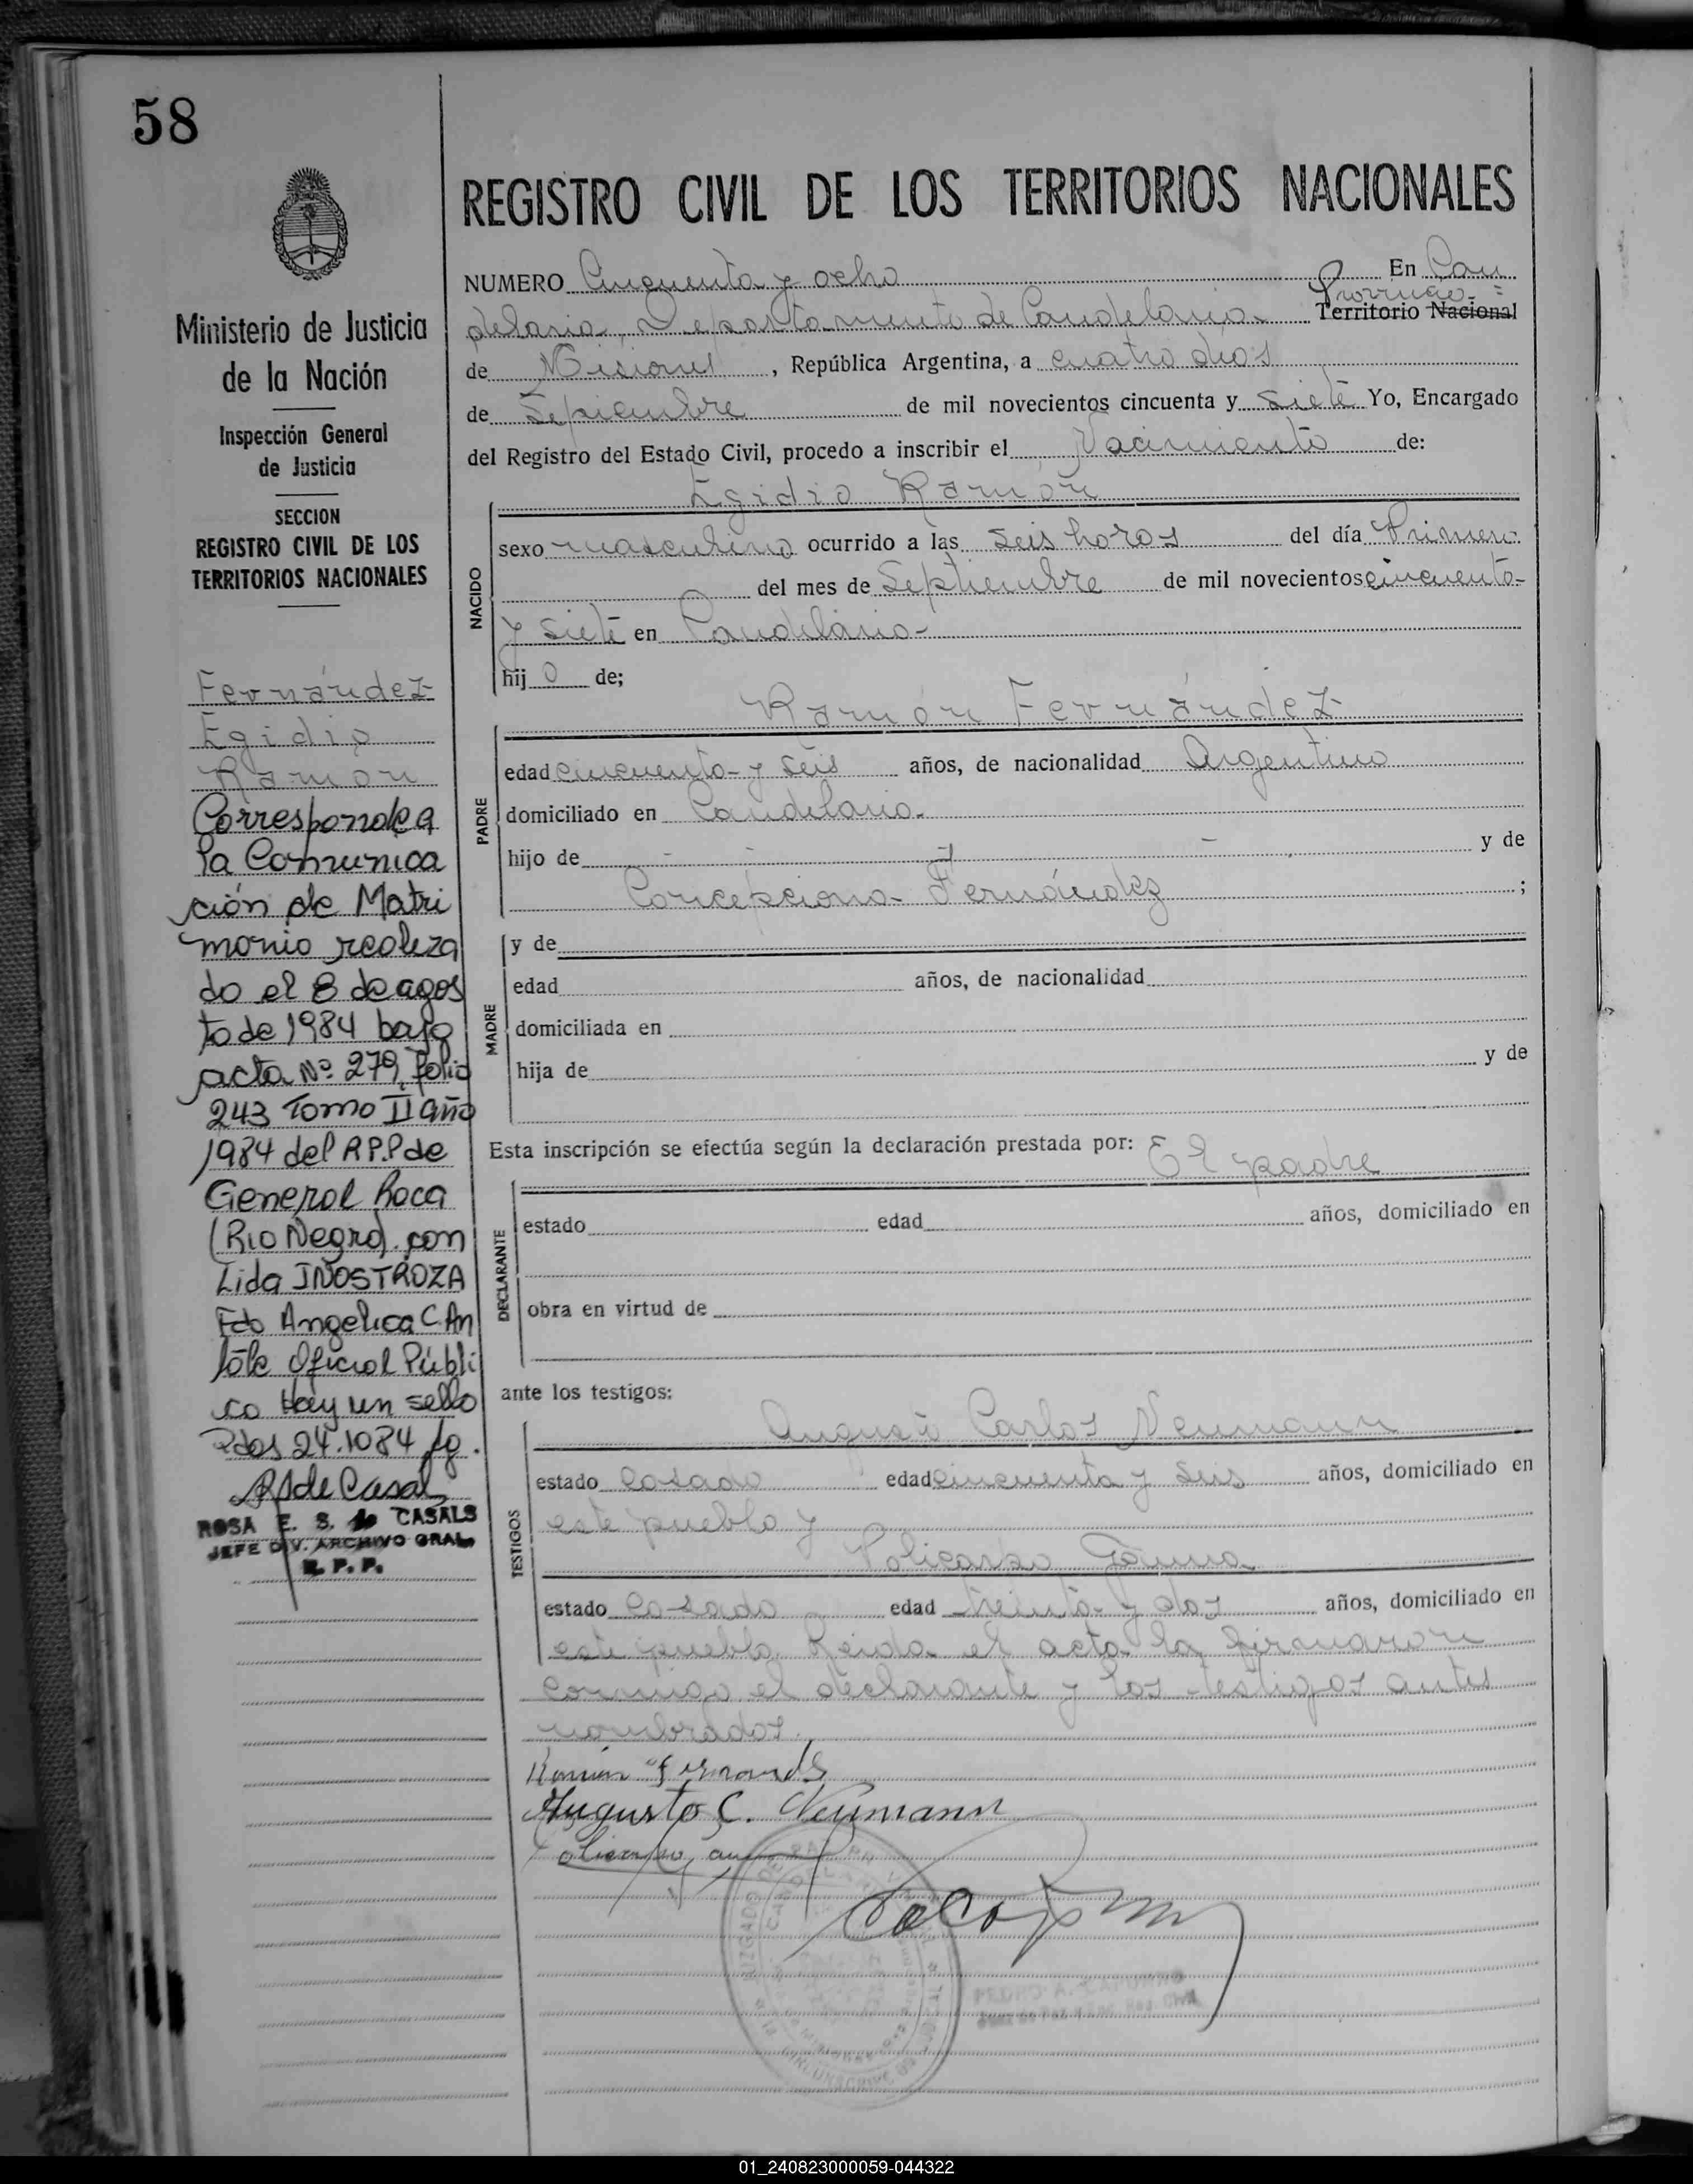 58
Ministerio de Justicia
de la Nación
Inspección General
de Justicia
SECCION
REGISTRO CIVIL DE LOS
TERRITORIOS NACIONALES
Fernández
Egidio
Ramón
Corresponde a
la Comunica
ción de Matri
monio realiza
do el 8 de agos
to de 1984 bajo
acta Nº 279, folio
243 Tomo II año
1984 del R.P.P de
General Roca
(Rio Negro). con
Lida INOSTROZA
Fdo Angelica C. An
Oficial Públi
co Hay un sello
Pdas 24.10 84
RSde Casals
ROSA E. S. de CASALS
JEFE DIV. ARCHIVO GRAL
R. P. P.
REGISTRO CIVIL DE LOS TERRITORIOS NACIONALES
NUMERO Cincuenta y ocho En Can
delaria, Departamento de Candelaria Provincia Territorio Nacional
de Misiones, República Argentina, a cuatro días
de Septiembre de mil novecientos cincuenta y siete Yo, Encargado
del Registro del Estado Civil, procedo a inscribir el Nacimiento de:
Egidio Ramón
NACIDO
sexo masculino ocurrido a las seis horas del día Primero
del mes de Septiembre de mil novecientos cincuenta
y siete en Candelaria
hij o de;
Ramón Fernández
PADRE
edad cincuenta y seis años, de nacionalidad Argentino
domiciliado en Candelaria.
hijo de y de
Concepciona Fernández ;
MADRE
y de
edad años, de nacionalidad
domiciliada en
hija de y de
Esta inscripción se efectúa según la declaración prestada por: El padre
DECLARANTE
estado edad años, domiciliado en
obra en virtud de
ante los testigos:
Augusto Carlos Neumann
TESTIGOS
estado casado edad cincuenta y seis años, domiciliado en
este pueblo y
Policarpo
estado casado edad treinta y dos años, domiciliado en
este pueblo. Leida el acta la firmaron
conmigo el declarante y los testigos antes
nombrados.
Ramón Fernandes
Augusto C. Neumann
01_240823000059-044322